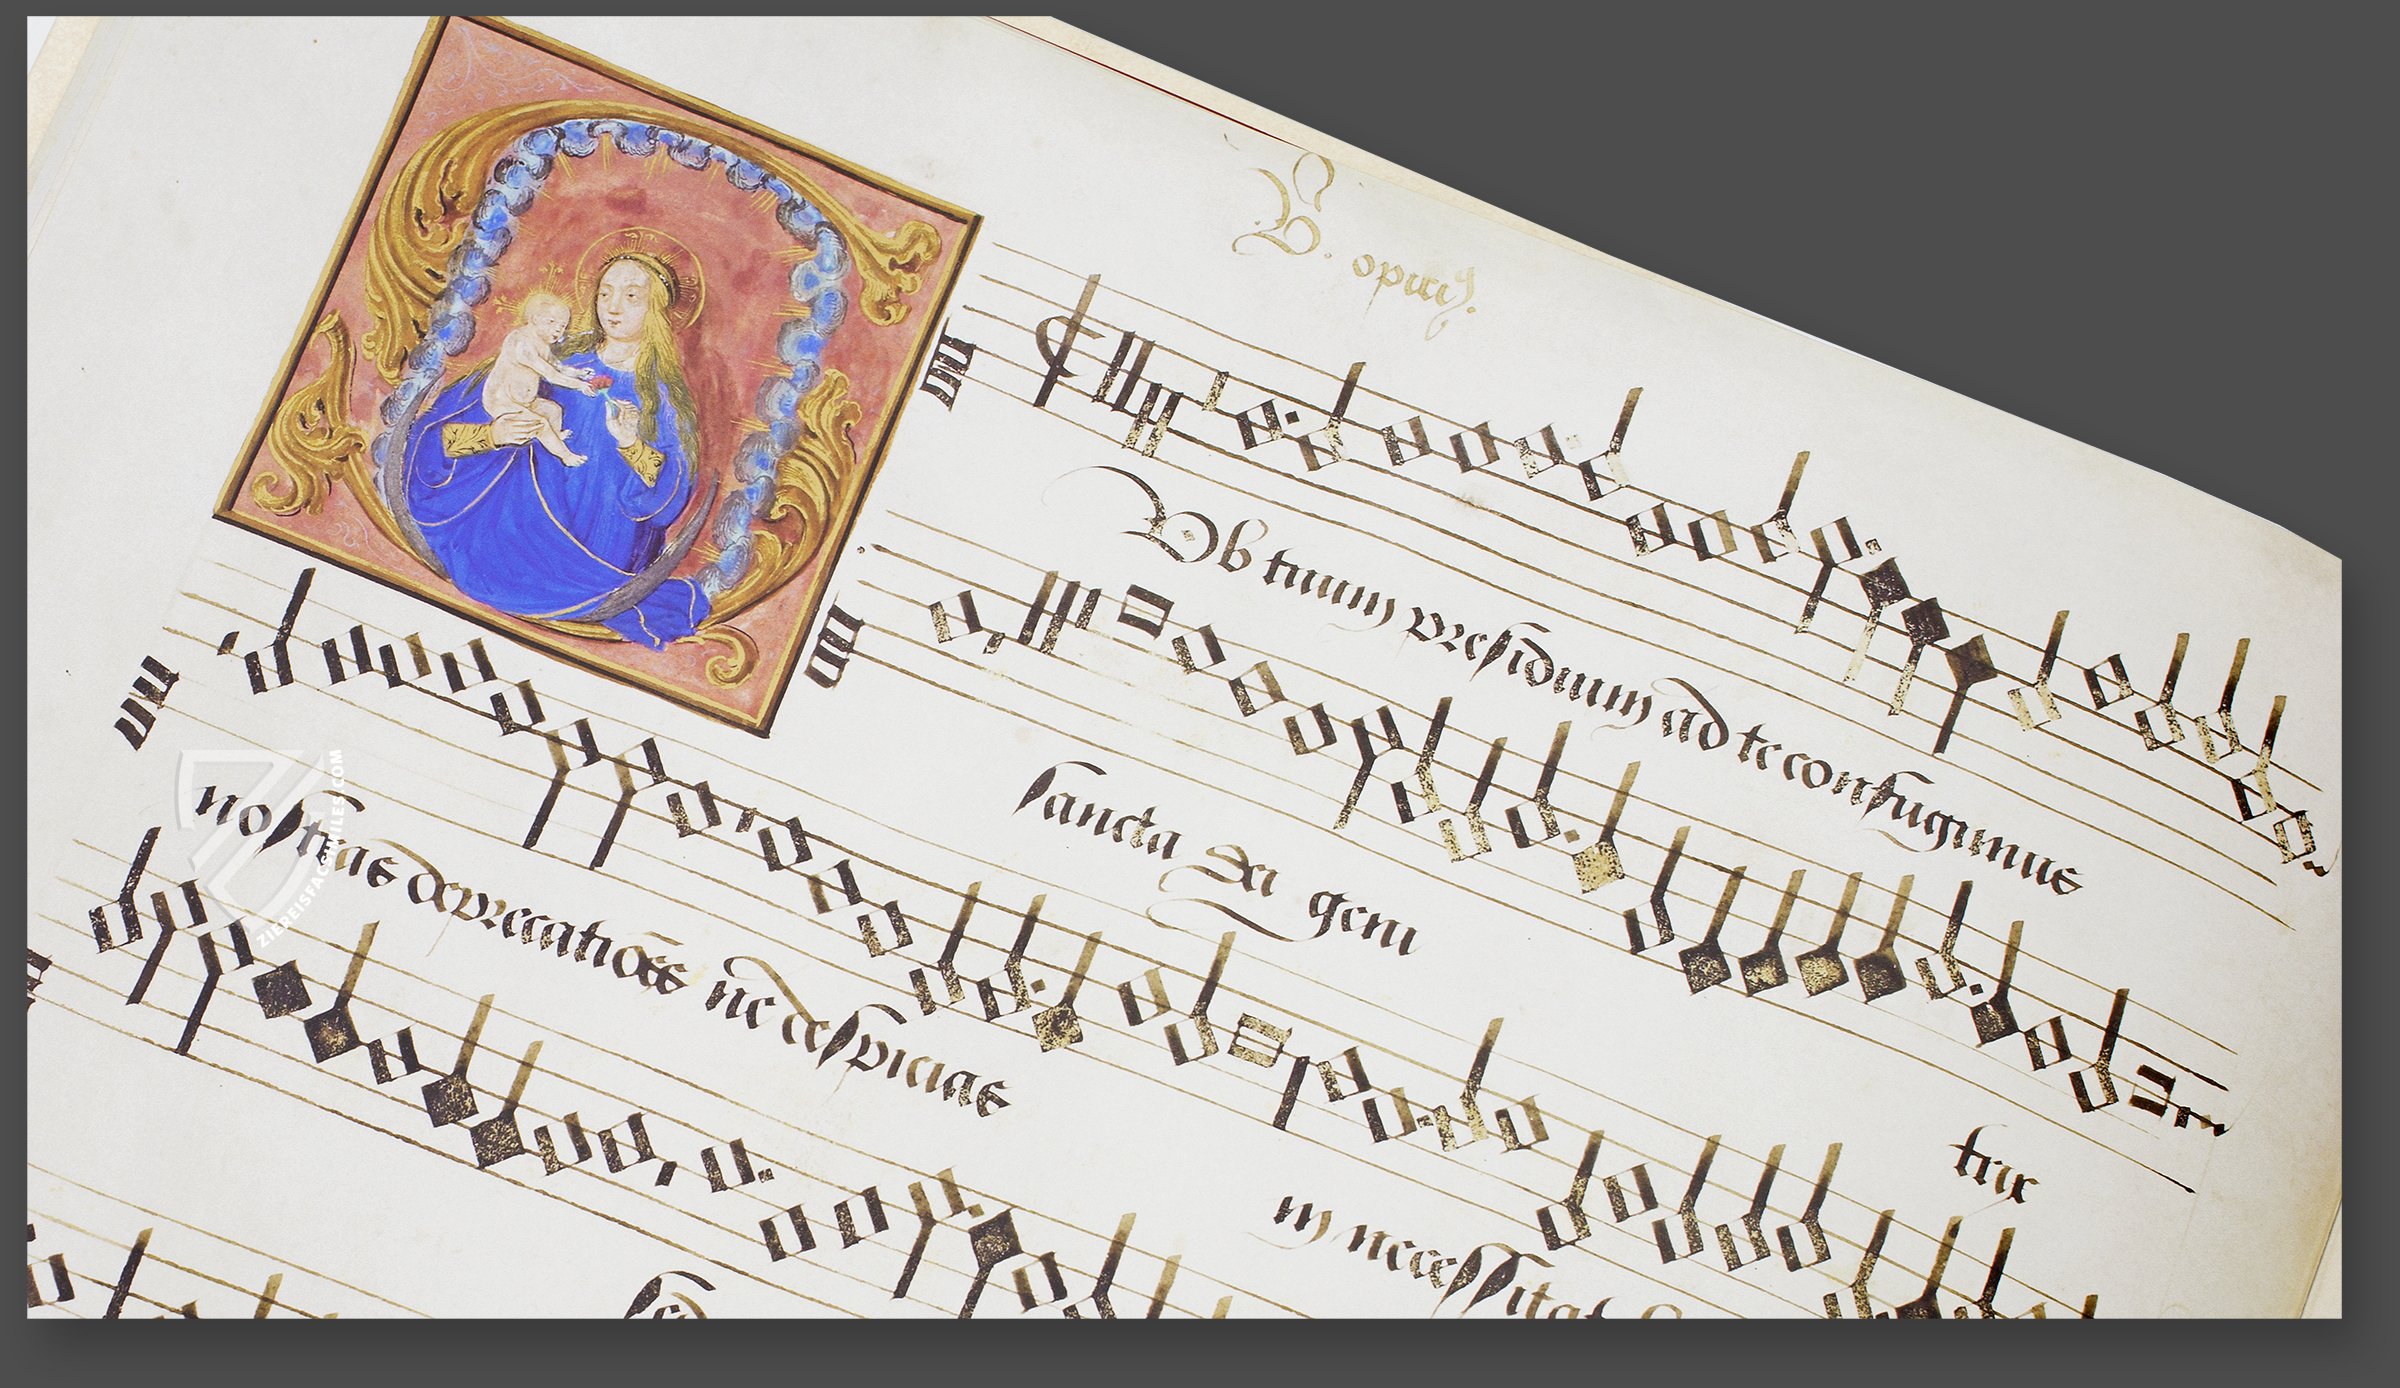 B. opitijs.
Sub tuum presidium ad te confugimus
sancta dei geni trix
nostras deprecatiões ne despicias
in necessitat
sed
ZIEREISFACSIMILES.COM